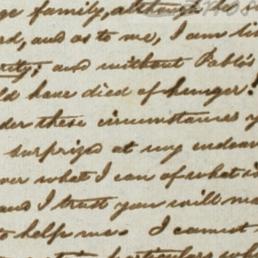 ge family, although he
rd, and as to me, I am li
rity; and without Pablo's
ld have died of hunger!
der these circumstances y
surprize at my endeavo
ver what I can of what i
and I trust you will ma
to help me. I cannot
particulars wh